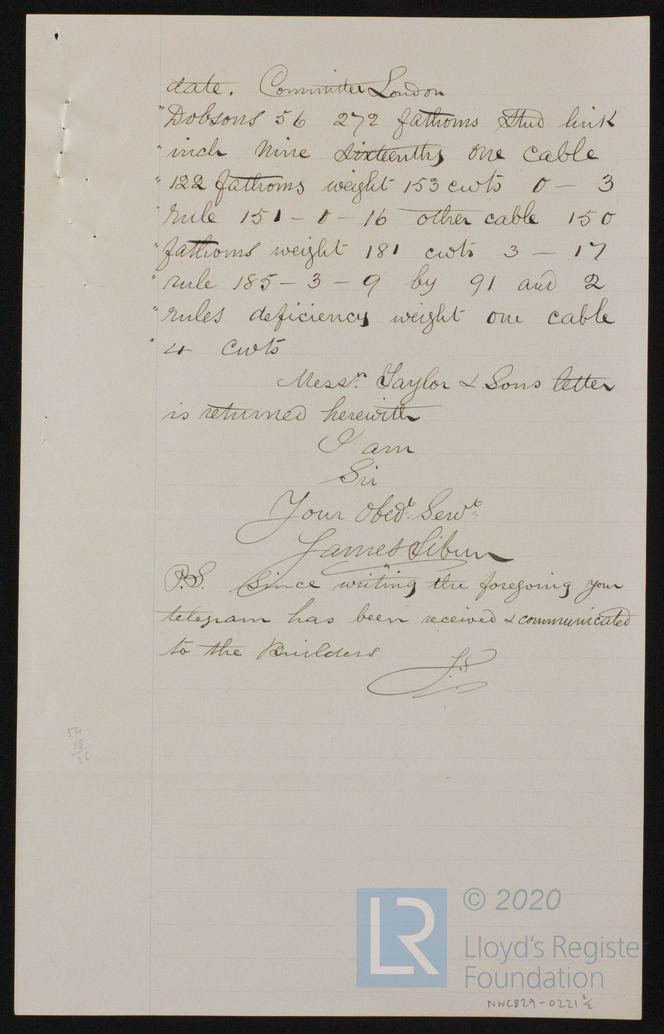 date. Committee London
"Dobsons 56 272 fathoms Stud link
"inch Nine sixteenths one cable
"122 fathoms weight 153 cwts 0 – 3
"rule 151 – 0 – 16 other cable 150
"fathoms weight 181 cwts 3 – 17
"rule 185 – 3 – 9 by 91 and 2
"rules deficiency weight one cable
"4 cwts
Messrs. Taylor & Sons letter
is returned herewith
I am
Sir
Your Obedt. Servt.
James
P.S. Since writing the foregoing your
telegram has been received & communicated
to the Builders
J.S
LR
© 2020
Lloyd's Register
Foundation
NWC829-0221 2/2